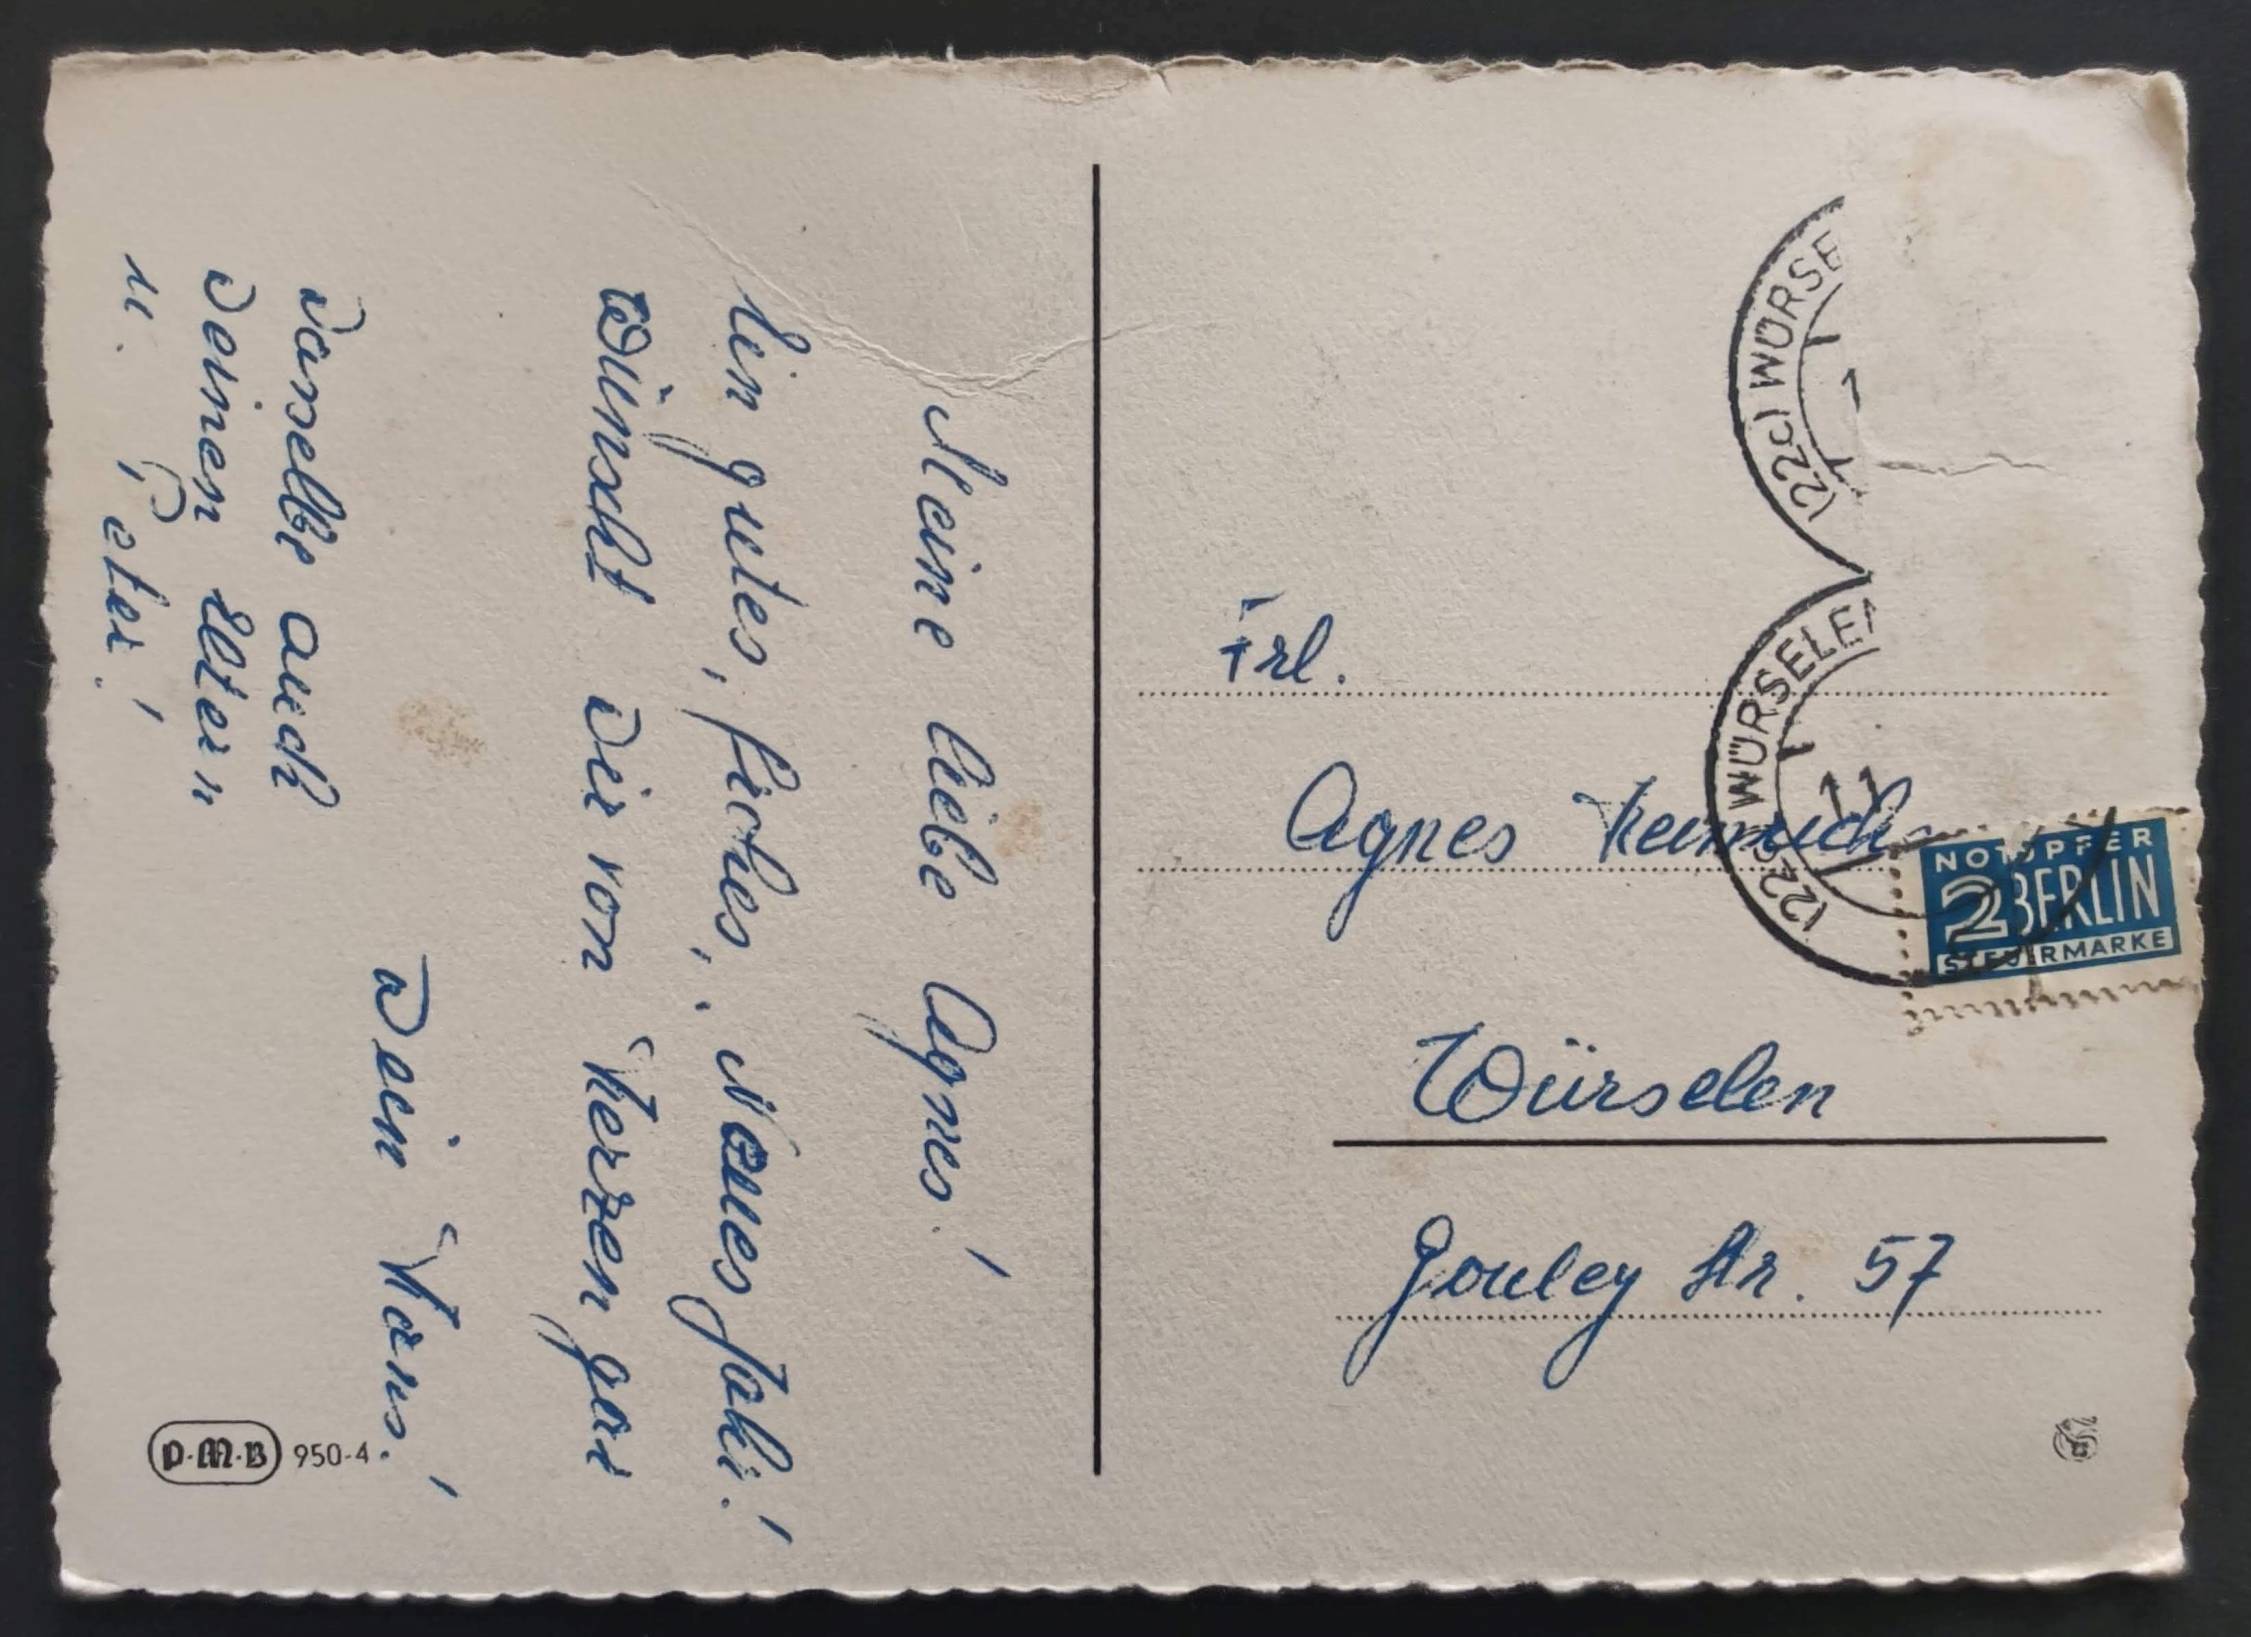 Meine liebe Agnes!
Ein gutes, frohes, Neues Jahr!
Wünscht Dir von Herzen gar
Dein Hans!
Dasselbe auch
Deinen Eltern
u. Peter!
P.M.B 950-4
(22c) WÜRSE
(22c) WÜRSELEN
NOTOPFER
2 BERLIN
STEUERMARKE
Frl.
Agnes
Würselen
Gouley Str. 57